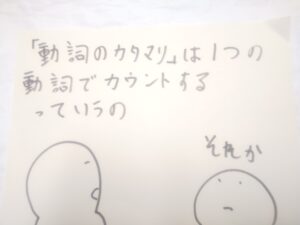 「動詞のカタマリ」は1つの
動詞でカウントする
っていうの
それか